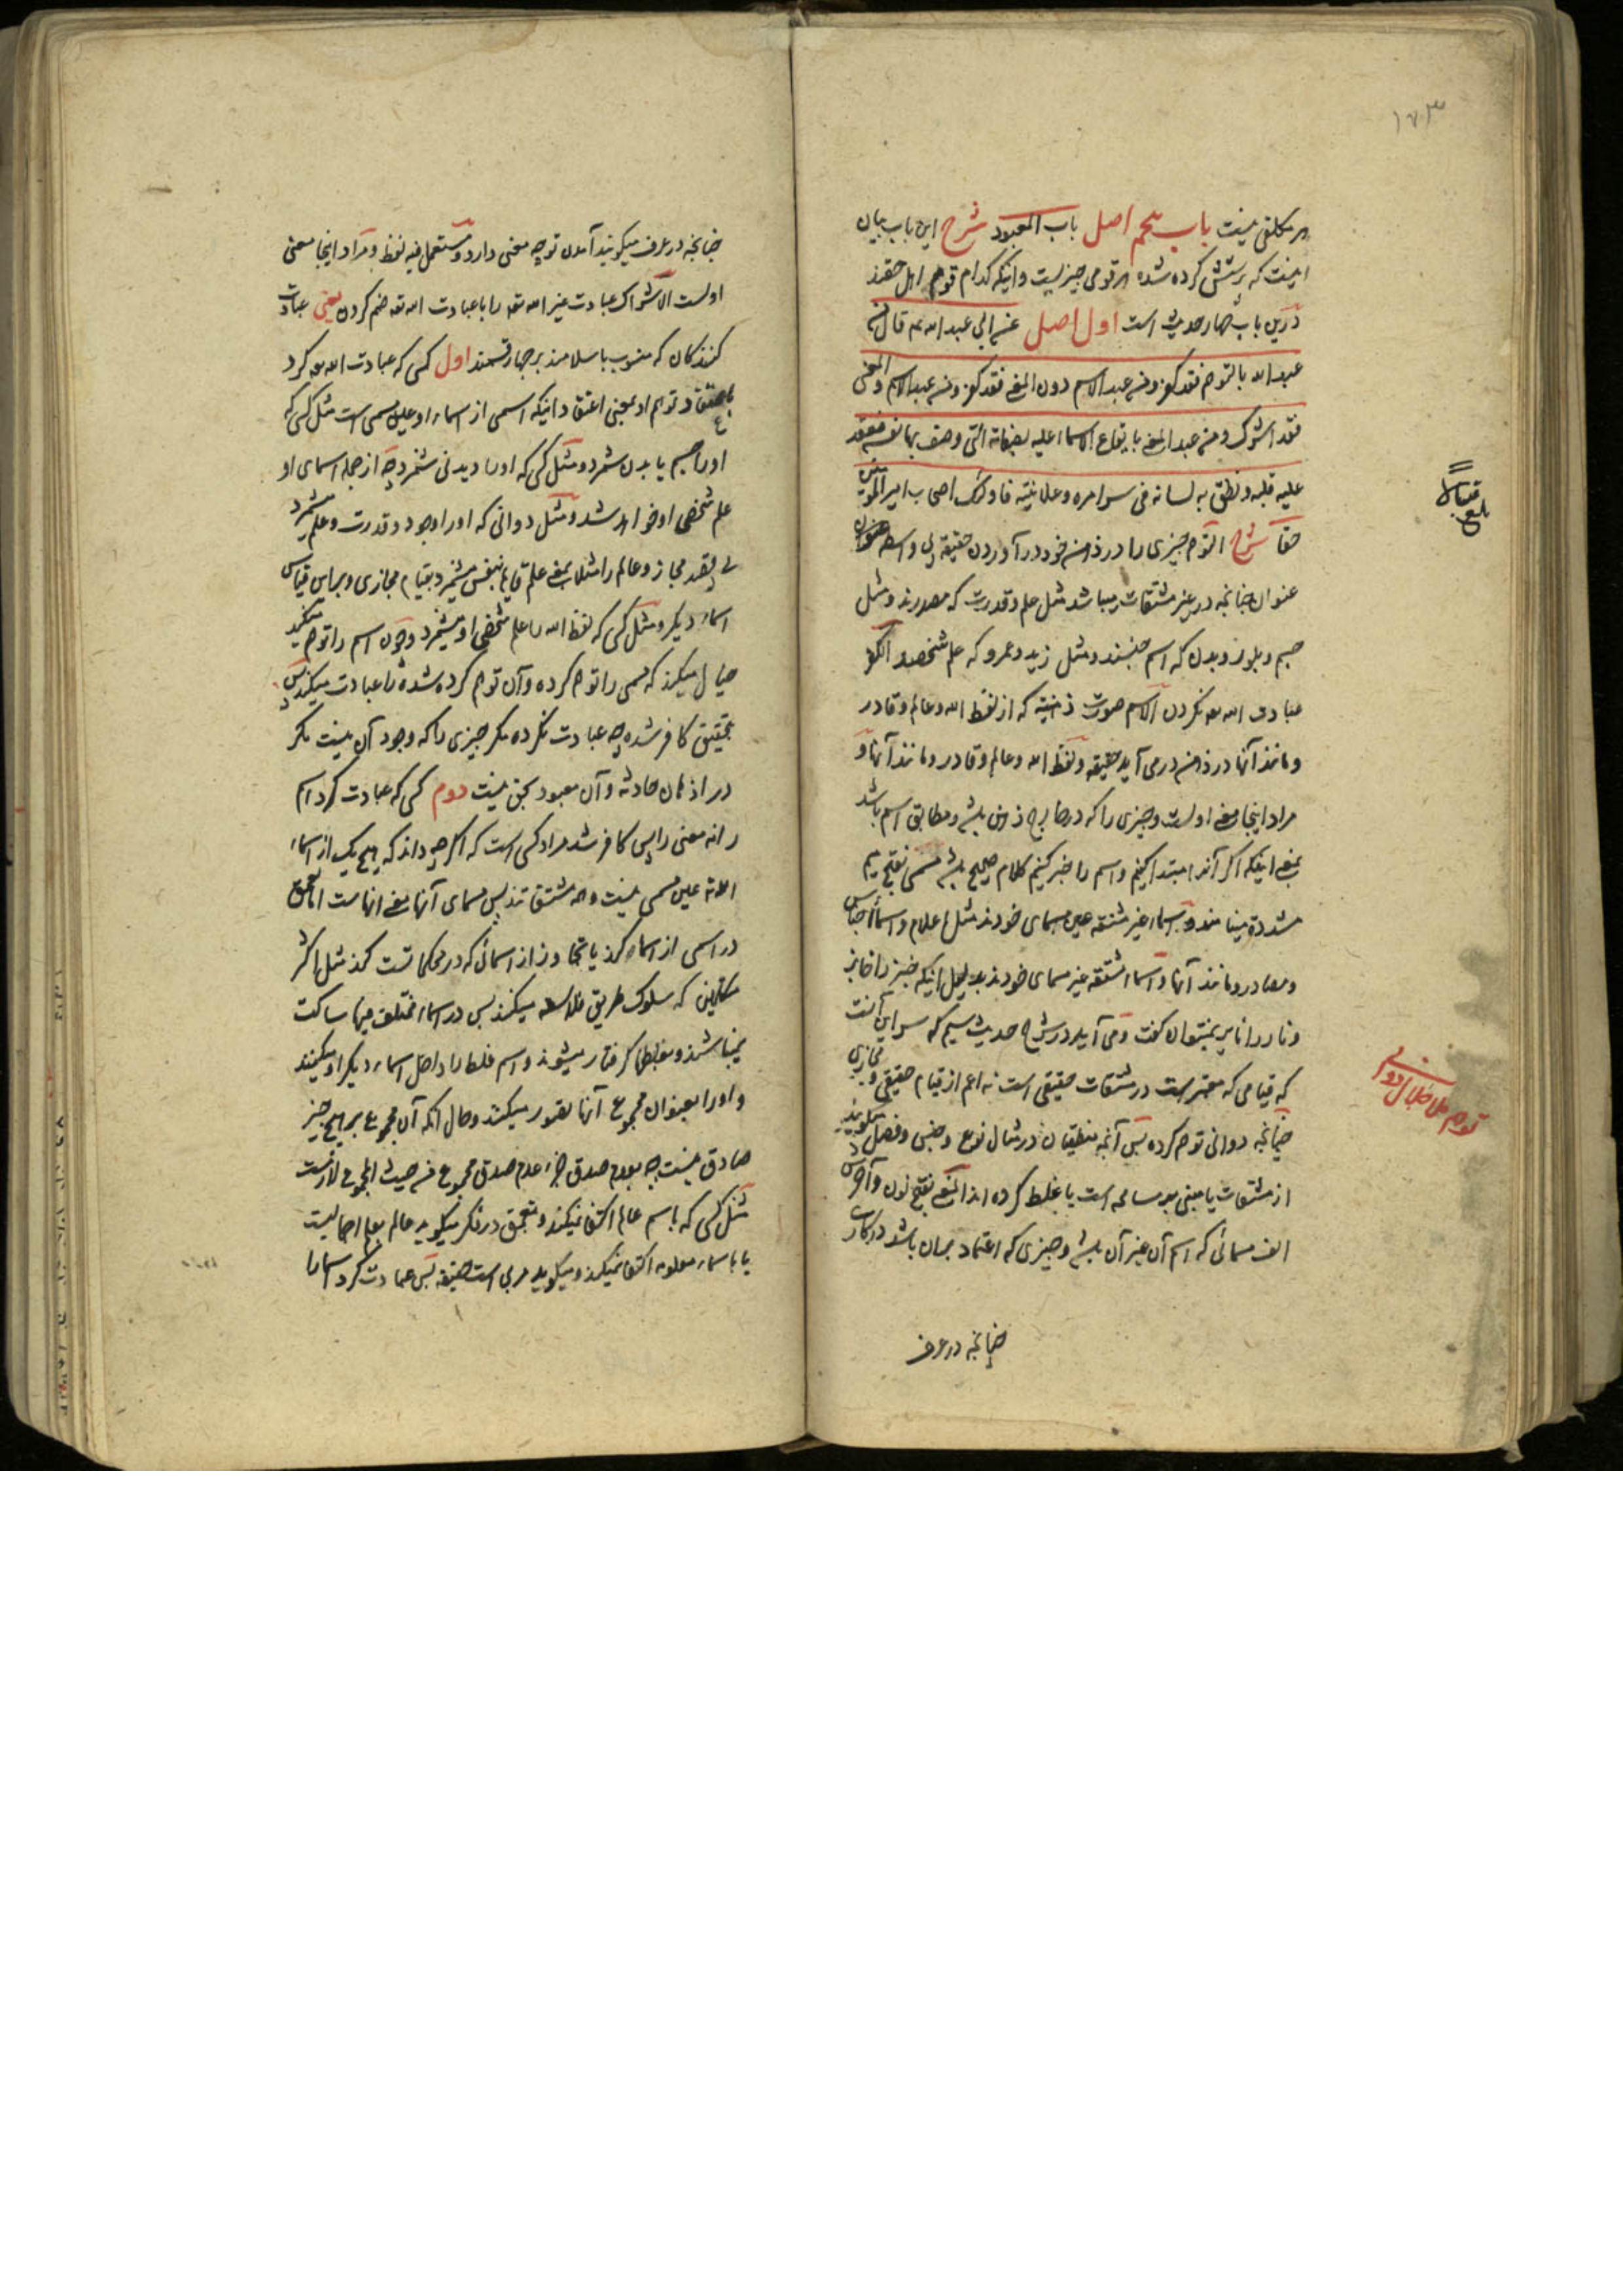 ۱۷۳
هر مکلفی نیست باب پنجم اصل باب المعبود شرح این باب بیان
اینست که پرستش کرده شده هر قومی چیزیست و اینکه کدام قوم اهل حقند
درین باب چهار حدیث است اول اصل عن ابی عبد الله عه قال من
عبد الله بالتوهم فقد کفر و من عبد الاسم دون المعنی فقد کفر و من عبد الاسم والمعنی
فقد اشرک و من عبد المعنی بایقاع الاسماء علیه بصفاته التی وصف بها نفسه فعقد
علیه قلبه و نطق به لسانه فی سرایره و علانیته فاولئک اصحاب امیر المؤمنین
حقا شرح التوهم چیزی را در ذهن خود در آوردن حقیقه بی واسطه عنوان
عنوان چنانچه در غیر مشتقات میباشد مثل علم و قدرت که مصدرند و مثل
جسم و بلور و بدن که اسم جنسند و مثل زید و عمرو که علم شخصند الکفر
عبادت الله تعه نکردن الاسم صورت ذهنیه که از لفظ الله و عالم و قادر
و مانند آنها در ذهن درمی آید حقیقه و لفظ الله و عالم و قادر و مانند آنها و
مراد اینجا معنی اولست و چیزی را که در خارج ذهن باشد و مطابق اسم باشد
بمعنی اینکه اگر آنرا مبتدا کنیم و اسم را خبر کنیم کلام صحیح باشد مسمی بفتح میم
مشدده مینامند و اسماء غیر مشتقه عین مسمای خودند مثل اعلام و اسماء اجناس
و مصادر و مانند آنها و اسماء مشتقه غیر مسمای خودند بدلیل اینکه خبز را خابز
و نار را نایر نمیتوان گفت و می آید در شرح حدیث سیم که سر این آنست
که قیامی که معتبر است در مشتقات حقیقی است نه اعم از قیام حقیقی و مجازی
چنانچه دوانی توهم کرده پس آنچه منطقیان در مثال نوع و جنس و فصل میگویند
از مشتقات یا مبنی بر مسامحه است یا غلط کرده اند المعنی بفتح نون و آخرش
الف مسمائی که اسم آن غیر آن باشد و چیزی که اعتماد بران باشد در کار
چنانچه در عرف
بلغ قبالا
توهم ملا جلال دوانی
چنانچه در عرف میگویند آمدن تو چه معنی دارد و مستعمل فیه لفظ و مراد اینجا معنی
اولست الاشراک عبادت غیر الله تعه را با عبادت الله تعه ضم کردن یعنی عبادت
کنندگان که منسوب باسلامند بر چهار قسمند اول کسی که عبادت الله تعه کرد
باعتقاد توهم او بمعنی اعتقاد اینکه اسمی از اسماء او عین مسمی است مثل کسی که
او را جسم یا بدن شمرد و مثل کسی که او را دیدنی شمرد چه از جمله اسمای او
علم شخصی او خواهد شد و مثل دوانی که او را وجود و قدرت و علم میشمرد
بی قصد مجاز و عالم را مثلا بمعنی علم قایم بنفس میشمرد بقیام مجازی و براین قیاس
اسماء دیگر و مثل کسی که لفظ الله را علم شخصی او میشمرد و چون اسم را توهم میکند
خیال میکند که مسمی را توهم کرده و آن توهم کرده شده را عبادت میکند پس
بتحقیق کافر شده چه عبادت نکرده مگر چیزی را که وجود آن نیست مگر
در اذهان حادثه و آن معبود بحق نیست دوم کسی که عبادت کرد اسم
را نه معنی را پس کافر شد مراد کسی است که اگر چه داند که هیچ یک از اسماء
الله تعه عین مسمی نیست و همه مشتقاتند پس مسمای آنها معنی انهاست اما تعمق
در اسمی از اسماء کند یا تجاوز از اسمائی که در محکماتست کند مثل اکثر
متکلمین که سلوک طریق فلاسفه میکنند پس در اسماء مختلف فیها ساکت
نمیباشند و بغلطها گرفتار میشوند و اسم غلط را داخل اسماء دیگر او میکنند
و او را بعنوان مجموع آنها تصور میکنند و حال آنکه آن مجموع بر هیچ چیز
صادق نیست چه بعدم صدق جزء عدم صدق مجموع من حیث المجموع لازمست
مثل کسی که باسم عالم اکتفا نمیکند و بتعمق در فکر میگوید عالم بعلم اجمالیست
یا باسماء معلومه اکتفا نمیکند و میگوید مرئی است حقیقه پس عبادت کرد اسما را